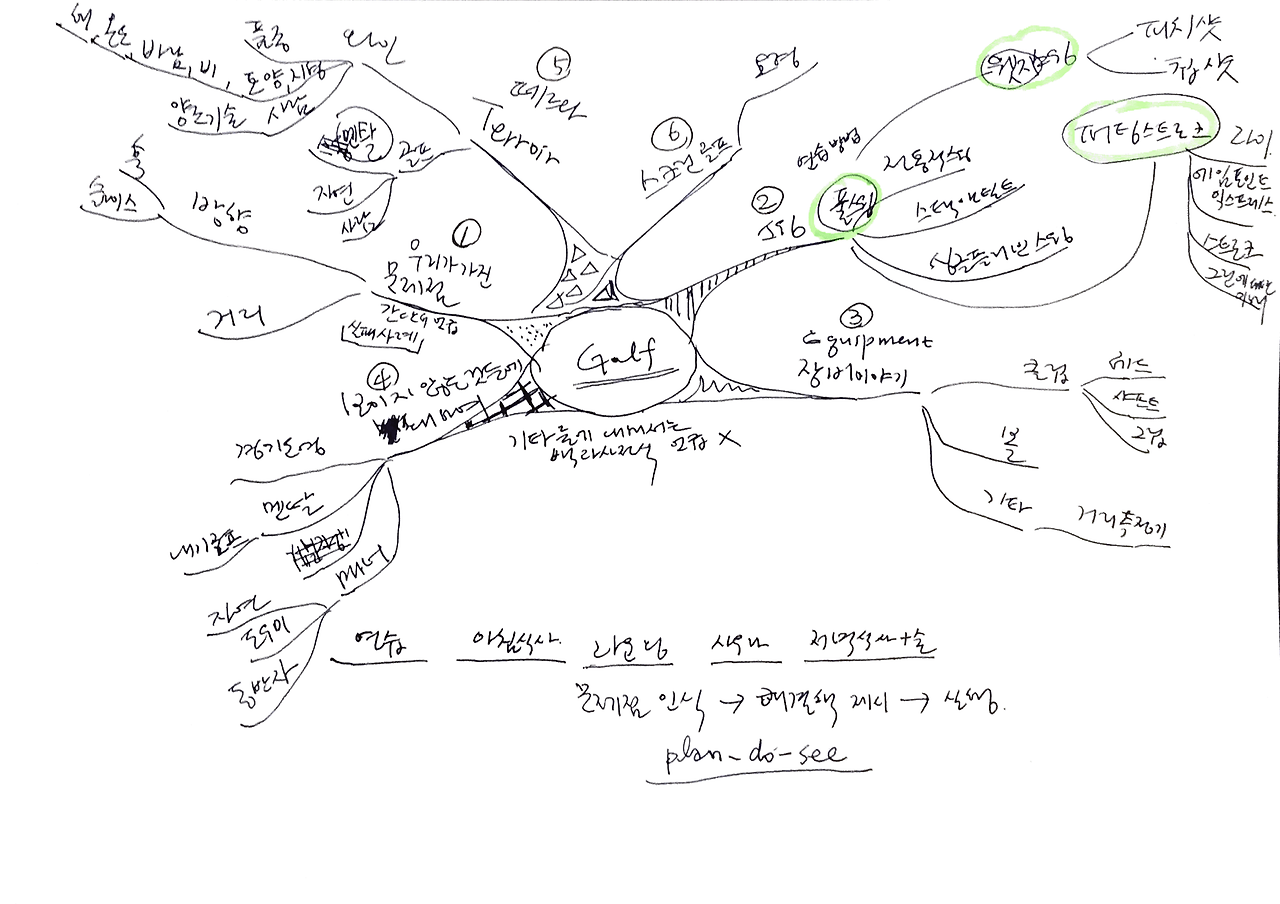 Golf
①
우리가 가진
문제점
간단히 언급
실패사례
방향
훅
슬라이스
거리
②
스윙
연습방법
풀스윙
전통적스윙
스택앤틸트
싱글플레인 스윙
피치샷
칩샷
퍼팅스트로크
라이
에임포인트
익스프레스
스트로크
③
Equipment
장비이야기
클럽
헤드
샤프트
그립
볼
기타
거리측정기
④
보이지 않는 것들에
대하여
경기운영
멘탈
내기골프
매너
자연
도우미
동반자
⑤
떼르와
Terroir
와인
품종
바람, 비, 토양, 지형
양조기술
사람
골프
멘탈
자연
사람
⑥
스크린 골프
요령
기타 등에 대해서는
백과사전식 언급 X
연습
아침식사
라운딩
사우나
저녁식사+술
문제점 인식 → 해결책 제시 → 실행.
plan-do-see